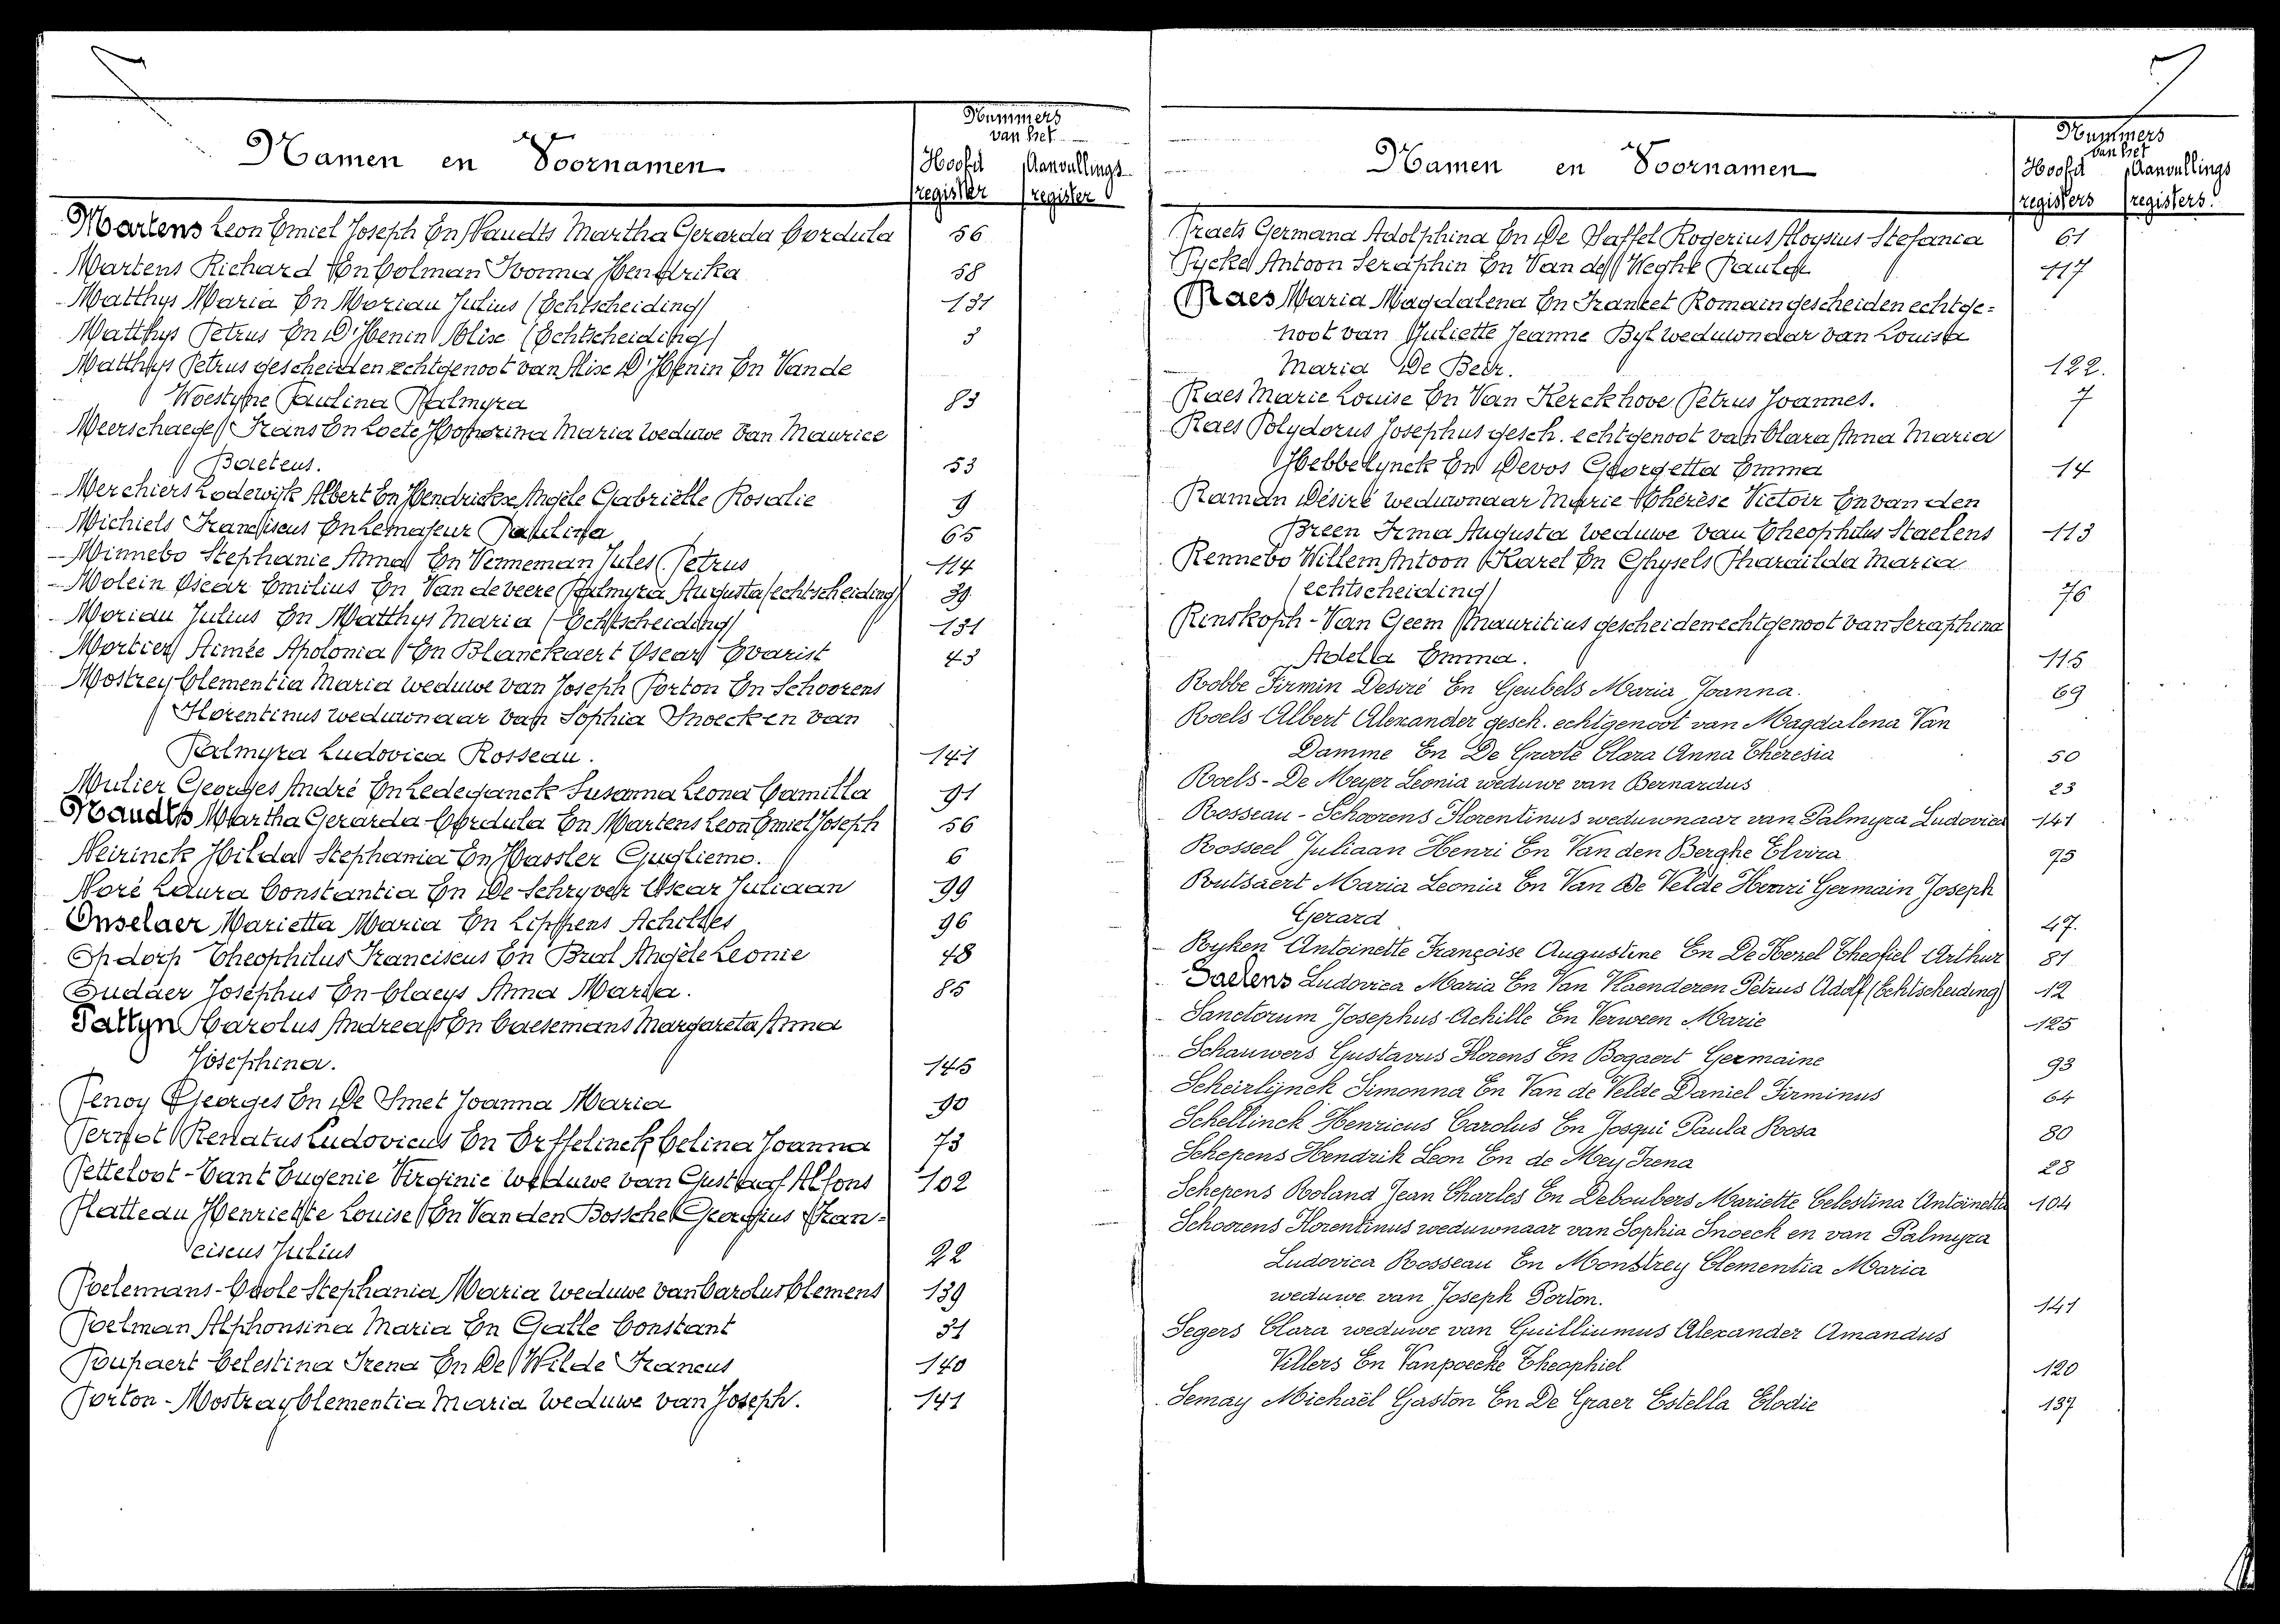 Namen en Voornamen
Nummers
van het
Hoofd Aanvullings
register register
Martens Leon Emiel Joseph En Naudts Martha Gerarda Cordula 56
Martens Richard En Colman Ivonna Hendrika 58
Matthys Maria En Moriau Julius (Echtscheiding) 131
Matthys Petrus En D'Henin Alise (Echtscheiding) 3
Matthys Petrus gescheiden echtgenoot van Alise D'Henin En Van de
Woestyne Paulina Palmyra 83
Meerschaege Frans En Loete Honorina Maria weduwe Van Maurice
Baeteus. 53
Merchiers Lodewijk Albert En Hendrickse Angele Gabriëlle Rosalie 9
Michiels Franciscus En Lemaseur Paulina 65
Minnebo Stephanie Anna En Venneman Jules Petrus 114
Molein Oscar Emilius En Van de veere Palmyra Augusta (echtscheiding) 39
Moriau Julius En Matthys Maria (Echtscheiding) 131
Mortier Aimée Apolonia En Blanckaert Oscar Evarist 43
Mostrey Clementia Maria weduwe van Joseph Porton En Schoorens
Florentinus weduwnaar van Sophia Snoeck en van
Palmyra Ludovica Rosseau. 141
Mulier Georges André En Ledeganck Susanna Leona Camilla 91
Naudts Martha Gerarda Cordula En Martens Leon Emiel Joseph 56
Neirinck Hilda Stephania En Hassler Gugliemo. 6
Noré Laura Constantia En De Schryver Oscar Juliaan 99
Onselaer Marietta Maria En Lippens Achilles 96
Opdorp Theophilus Franciscus En Bral Angèle Leonie 48
Oudaer Josephus En Claeys Anna Maria. 85
Pattyn Carolus Andreas En Caesemans Margareta Anna
Josephina. 145
Penoy Georges En De Smet Joanna Maria 90
Pernot Renatus Ludovicus En Erffelinck Celina Joanna 73
Petteloot-Cant Eugenie Virginie Weduwe van Gustaaf Alfons 102
Platteau Henriette Louise En Van den Bossche Georgius Fran-
ciscus Julius 22
Poelemans-Coole Stephania Maria Weduwe van Carolus Clemens 139
Poelman Alphonsina Maria En Galle Constant 31
Poupaert Celestina Irena En De Wilde Francus 140
Porton-Mostray Clementia Maria Weduwe van Joseph. 141
Namen en Voornamen
Nummers
van het
Hoofd Aanvullings
registers registers.
Praets Germana Adolphina En De Taffel Rogerius Aloysius Stefania 61
Pycke Antoon Seraphin En Van de Weghe Paula 117
Raes Maria Magdalena En Franket Romain gescheiden echtge-
noot van Juliette Jeanne Byl weduwnaar van Louisa
Maria De Beir. 122.
Raes Marie Louise En Van Kerckhove Petrus Joannes. 7
Raes Polydorus Josephus gesch. echtgenoot van Clara Anna Maria
Hebbelynck En Devos Georgetta Emma 14
Raman Désiré weduwnaar Marie Thérèse Victoir En van den
Breen Irma Augusta weduwe van Theophilus Staelens 113
Rennebo Willem Antoon Karel En Ghysels Pharaïlda Maria
(echtscheiding) 76
Rinskoph-Van Geem Mauritius gescheiden echtgenoot van Seraphina
Adella Emma. 115
Robbe Firmin Desiré En Geubels Maria Joanna. 69
Roels Albert Alexander gesch. echtgenoot van Magdalena Van
Damme En De Groote Clara Anna Theresia 50
Roels-De Meyer Leonia weduwe van Bernardus 23
Rosseau-Schoorens Florentinus weduwnaar van Palmyra Ludovica 141
Rosseel Juliaan Henri En Van den Berghe Elvira 75
Rutsaert Maria Leonia En Van De Velde Henri Germain Joseph
Gerard 47.
Ryken Antoinette Françoise Augustine En De Henel Theofiel Arthur 81
Saelens Ludovica Maria En Van Vlaenderen Petrus Adolf (Echtscheiding) 12
Sanctorum Josephus Achille En Verween Marie 125
Schauwers Gustavus Florens En Bogaert Germaine 93
Scheirlijnck Simonna En Van de Velde Daniel Firminus 64
Schellinck Henricus Carolus En Josqui Paula Rosa 80
Schepens Hendrik Leon En de Mey Irena 28
Schepens Roland Jean Charles En Deboubers Mariette Celestina Antoinetta 104
Schoorens Florentinus weduwnaar van Sophia Snoeck en van Palmyra
Ludovica Rosseau En Monstrey Clementia Maria
weduwe van Joseph Porton. 141
Segers Clara weduwe van Guilliumus Alexander Amandus
Villers En Vanpoecke Theophiel 120
Semay Michaël Gaston En De Graer Estella Elodie 137